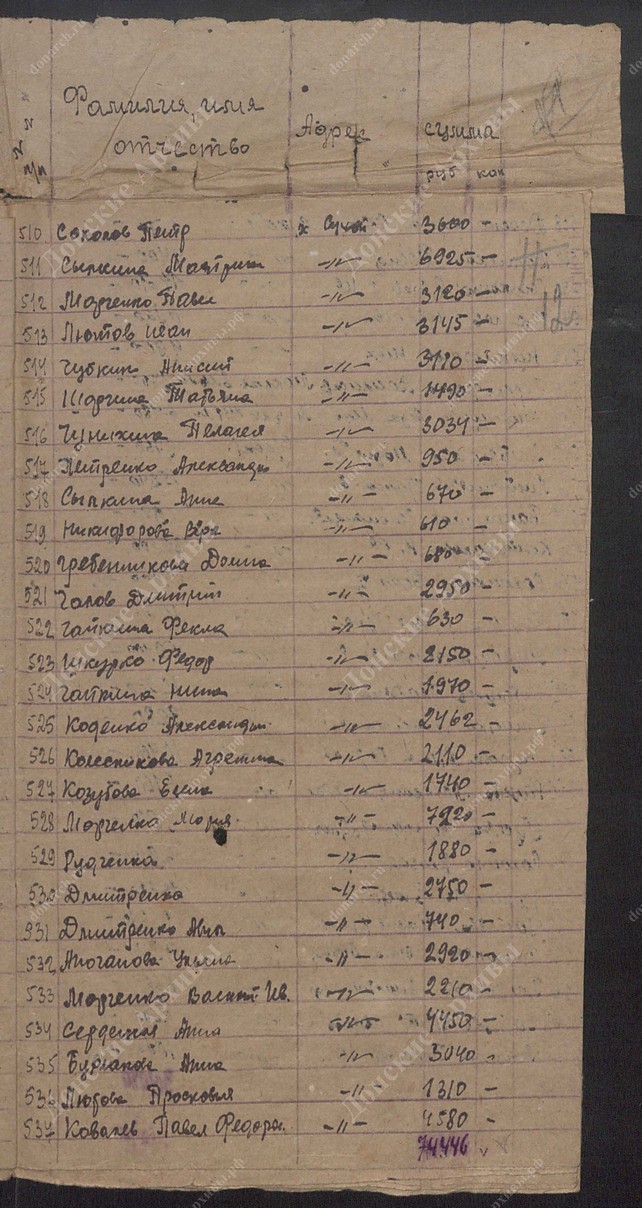 № № п/п Фамилия, имя отчество Адрес сумма руб коп
510 Соколов Петр х Сухой 3600 -
511 Сыпкина Матрина -"- 6925 -
512 Марченко Павел -"- 3120 -
513 Лютов Иван -"- 3145 -
514 Чубкин Анисит -"- 3110 -
515 Шаргина Татьяна -"- 1490 -
516 Чунихина Пелагея -"- 3034 -
517 Петренко Александр -"- 950 -
518 Сыпкина Анна -"- 670 -
519 Никифорова Вера -"- 610 -
520 Гребенникова Домна -"- 680 -
521 Галов Дмитрий -"- 2950 -
522 Гапкина Фекла -"- 630 -
523 Шкурко Федор -"- 2150 -
524 Гапкина Нина -"- 1970 -
525 Коденко Александр -"- 2462 -
526 Колесникова Агрепина -"- 2110 -
527 Козубова Елена -"- 1740 -
528 Марченко Мария -"- 7920 -
529 Рудченка -"- 1880 -
530 Дмитренко -"- 2750 -
531 Дмитренко -"- 740 -
532 Ульяна -"- 2920 -
533 Марченко Василий Ив. -"- 2210 -
534 Анна -"- 4450 -
535 Анна -"- 3040 -
536 Лютова Просковья -"- 1310 -
537 Ковалев Павел Федор. -"- 4580 -
74446